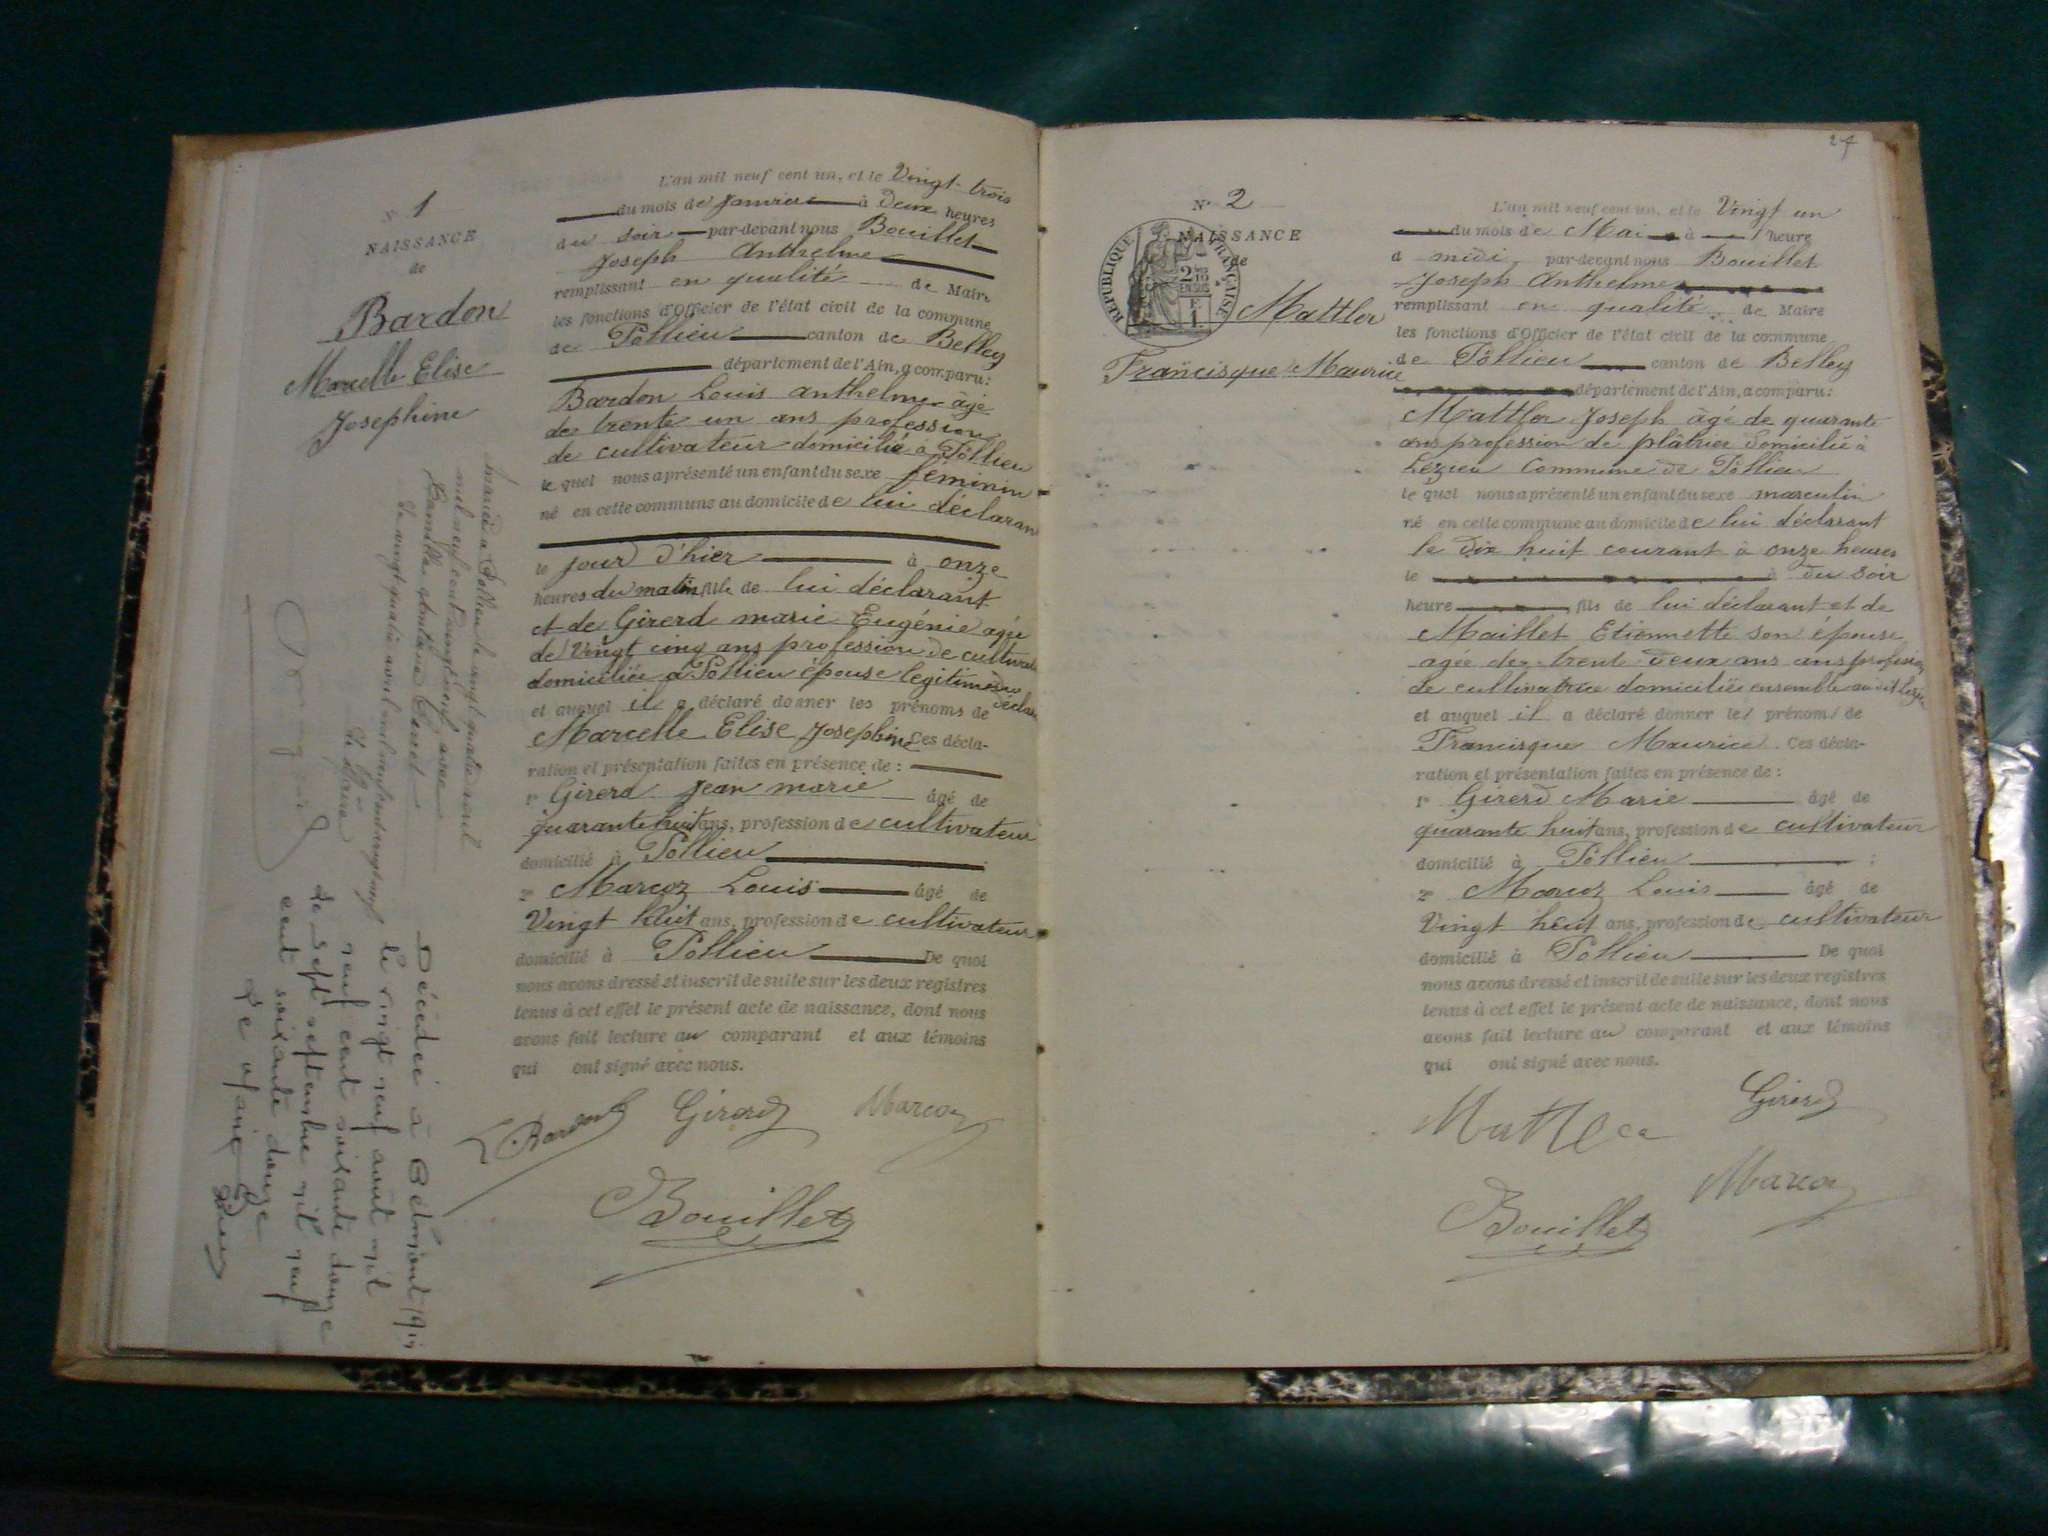 N° 1
NAISSANCE
de
Bardon
Marcelle Elise
Josephine
mariée à Pollieu le vingt quatre aout
mil neuf cent vingt neuf avec
Camille
Le vingt quatre aout mil neuf cent vingt neuf
Le Maire
Décédée à Belmont
le vingt neuf août mil
neuf cent soixante douze
Le sept septembre mil neuf
cent soixante douze
Le Maire
L'an mil neuf cent un, et le Vingt-trois
du mois de Janvier à Deux heures
du soir par-devant nous Bouillet
Joseph Anthelme
remplissant en qualité de Maire
les fonctions d'Officier de l'état civil de la commune
de Pollieu canton de Belley
département de l'Ain, a comparu:
Bardon Louis Anthelme âgé
de trente un ans profession
de cultivateur domicilié à Pollieu
le quel nous a présenté un enfant du sexe féminin
né en cette commune au domicile de lui déclarant
le jour d'hier à onze
heures du matin fille de lui déclarant
et de Girerd marie Eugénie agée
de Vingt cinq ans profession de cultivat
domiciliée à Pollieu épouse légitime du
déclar
et auquel il a déclaré donner les prénoms de
Marcelle Elise Josephine Ces décla-
ration et présentation faites en présence de :
1° Girerd Jean marie âgé de
quarante huit ans, profession de cultivateur
domicilié à Pollieu ;
2° Marcoz Louis âgé de
Vingt huit ans, profession de cultivateur
domicilié à Pollieu De quoi
nous avons dressé et inscrit de suite sur les deux registres
tenus à cet effet le présent acte de naissance, dont nous
avons fait lecture au comparant et aux témoins
qui ont signé avec nous.
Bardon Girerd Marcoz
Bouillet
27
N° 2
NAISSANCE
de
RÉPUBLIQUE FRANÇAISE
Mattler
Francisque Maurice
L'an mil neuf cent un, et le Vingt un
du mois de Mai à 1 heure
d midi par-devant nous Bouillet
Joseph Anthelme
remplissant en qualité de Maire
les fonctions d'Officier de l'état civil de la commune
de Pollieu canton de Belley
département de l'Ain, a comparu:
Mattler Joseph âgé de quarante
ans profession de plâtrier domicilié à
Lézieu Commune de Pollieu
le quel nous a présenté un enfant du sexe masculin
né en cette commune au domicile de lui déclarant
le dix huit courant à onze heures
le à du soir
heure fils de lui déclarant et de
Maillet Etiennette son épouse
agée de trent-deux ans ans profession
de cultivatrice domiciliée ensemble audit Lézieu
et auquel il a déclaré donner les prénoms de
Francisque Maurice. Ces décla-
ration et présentation faites en présence de :
1° Girerd Marie âgé de
quarante huit ans, profession de cultivateur
domicilié à Pollieu ;
2° Marcoz Louis âgé de
Vingt huit ans, profession de cultivateur
domicilié à Pollieu De quoi
nous avons dressé et inscrit de suite sur les deux registres
tenus à cet effet le présent acte de naissance, dont nous
avons fait lecture au comparant et aux témoins
qui ont signé avec nous.
Girerd
Marcoz
Bouillet